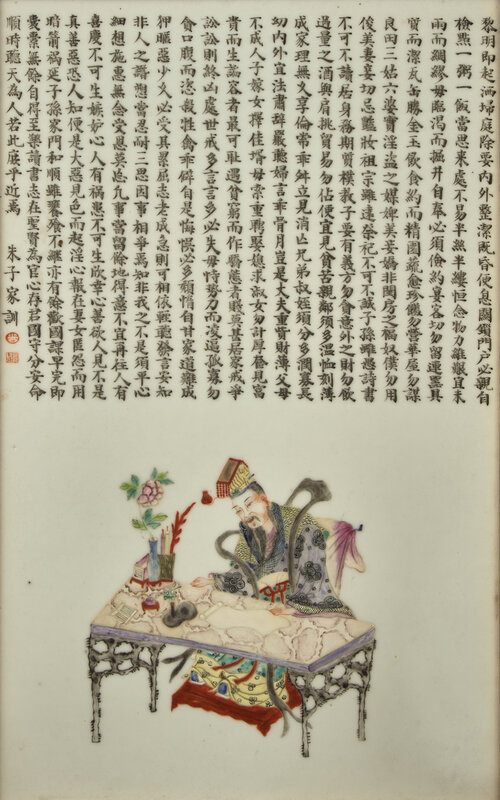 黎明即起洒埽庭除要內外整潔既昏便息關鎖門戶必親自
檢點一粥一飯當思來處不易半絲半縷恒念物力維艱宜未
雨而綢繆毋臨渴而掘井自奉必須儉約宴客切勿留連器具
質而潔瓦缶勝金玉飲食約而精園蔬愈珍饈勿營華屋勿謀
良田三姑六婆實淫盜之媒婢美妾嬌非閨房之福奴僕勿用
俊美妻妾切忌豔妝祖宗雖遠祭祀不可不誠子孫雖愚詩書
不可不讀居身務期質樸教子要有義方勿貪意外之財勿飲
過量之酒與肩挑貿易勿佔便宜見貧苦親鄰須多溫恤刻薄
成家理無久享倫常乖舛立見消亡兄弟叔姪須分多潤寡長
幼內外宜法肅辭嚴聽婦言乖骨肉豈是丈夫重貲財薄父母
不成人子嫁女擇佳壻毋索重聘娶媳求淑女勿計厚奩見富
貴而生諂容者最可恥遇貧窮而作驕態者賤莫甚居家戒爭
訟訟則終凶處世戒多言言多必失毋恃勢力而凌逼孤寡勿
貪口腹而恣殺牲禽乖僻自是悔悞必多頹惰自甘家道難成
狎暱惡少久必受其累屈志老成急則可相依輕聽發言安知
非人之譖愬當忍耐三思因事相爭焉知非我之不是須平心
細想施惠無念受恩莫忘凡事當留餘地得意不宜再往人有
喜慶不可生嫉妒心人有禍患不可生欣幸心善欲人見不是
真善惡恐人知便是大惡見色而起淫心報在妻女匿怨而用
暗箭禍延子孫家門和順雖饔飧不繼亦有餘歡國課早完即
囊橐無餘自得至樂讀書志在聖賢為官心存君國守分安命
順時聽天為人若此庶乎近焉 朱子家訓